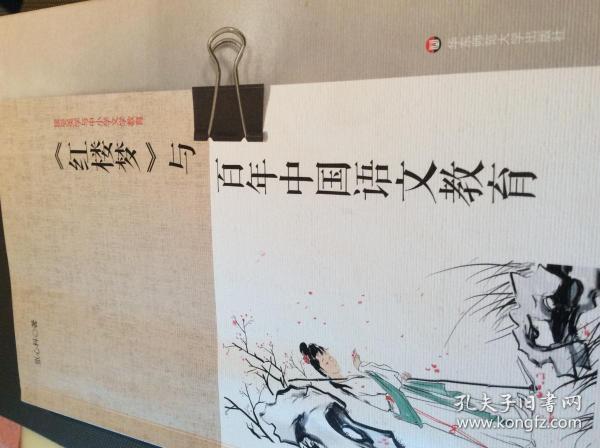 华东师范大学出版社
接受美学与中小学文学教育
《红楼梦》与
百年中国语文教育
张心科◎著
孔夫子旧书网
www.kongfz.com